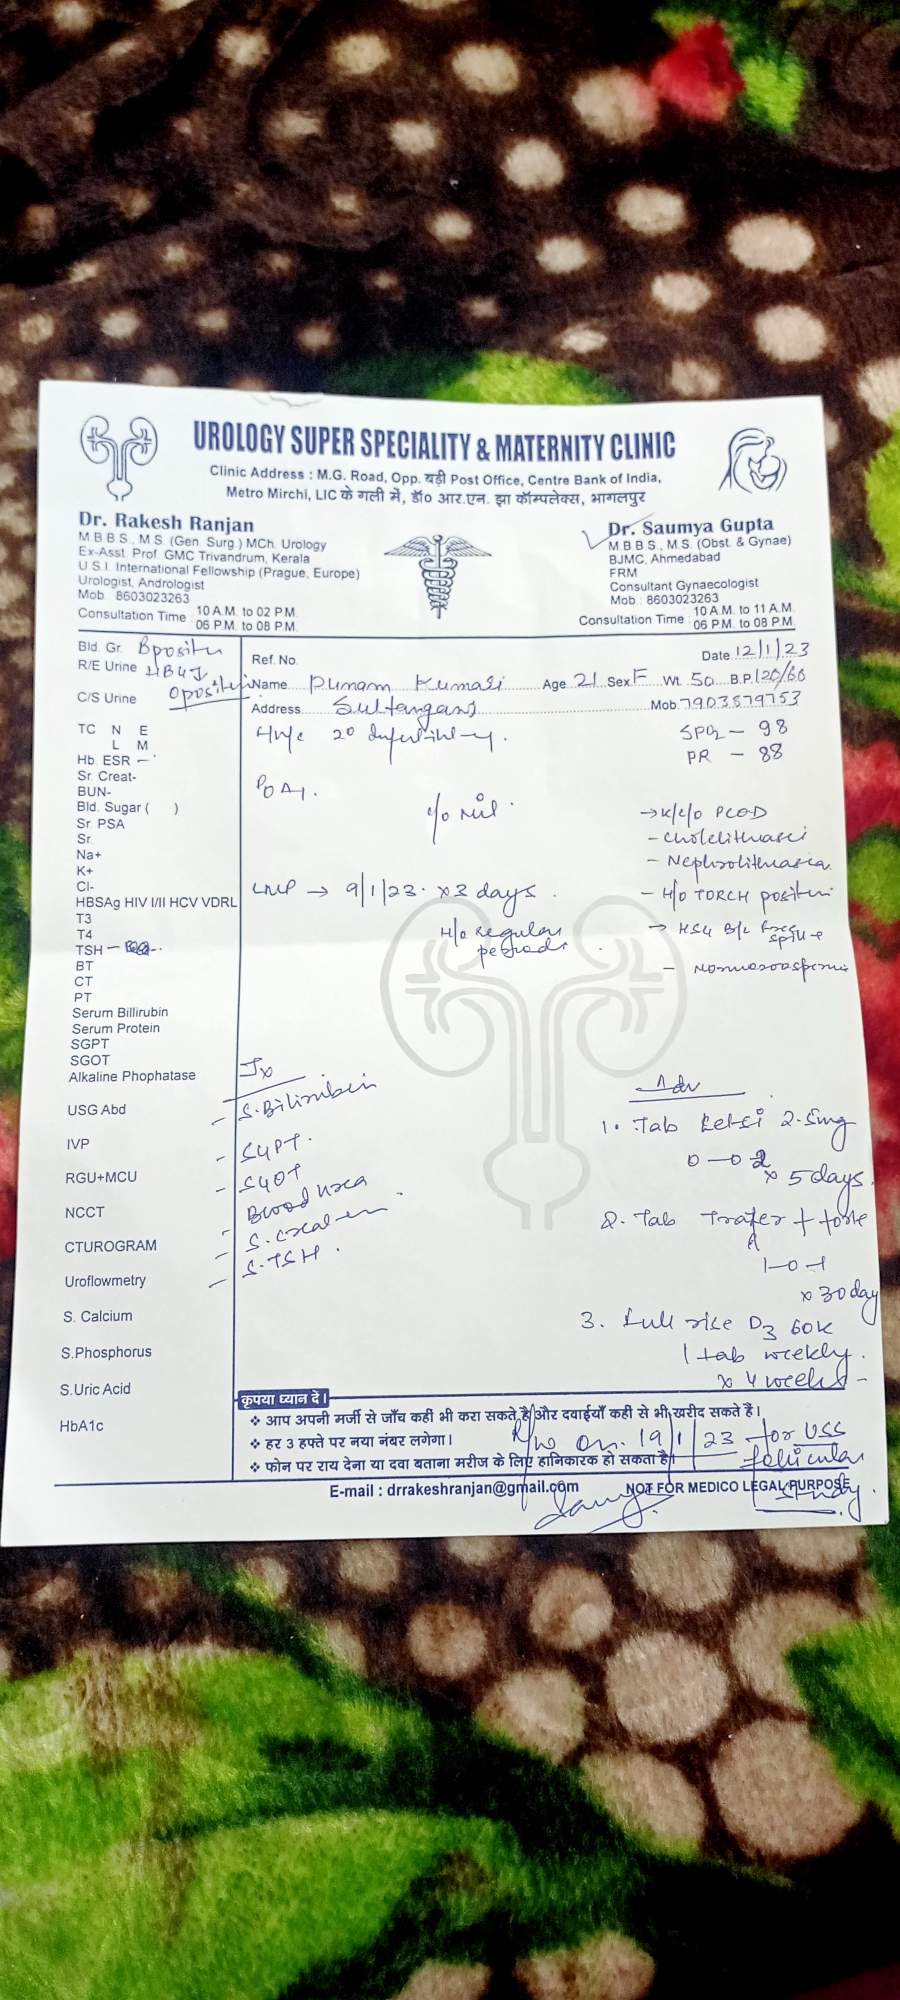 UROLOGY SUPER SPECIALITY & MATERNITY CLINIC
Clinic Address : M.G. Road, Opp. बड़ी Post Office, Centre Bank of India,
Metro Mirchi, LIC के गली में, डॉ० आर.एन. झा कॉम्पलेक्स, भागलपुर
Dr. Rakesh Ranjan
M.B.B.S., M.S. (Gen. Surg.) MCh. Urology
Ex-Asst. Prof. GMC Trivandrum, Kerala
U.S.I. International Fellowship (Prague, Europe)
Urologist, Andrologist
Mob. 8603023263
Consultation Time : 10 A.M. to 02 P.M.
06 P.M. to 08 P.M.
Dr. Saumya Gupta
M.B.B.S., M.S. (Obst. & Gynae)
BJMC, Ahmedabad
FRM
Consultant Gynaecologist
Mob.: 8603023263
Consultation Time : 10 A.M. to 11 A.M.
06 P.M. to 08 P.M.
Bld. Gr.
R/E Urine
C/S Urine
TC N E
L M
Hb. ESR -
Sr. Creat-
BUN-
Bld. Sugar ( )
Sr. PSA
Sr.
Na+
K+
Cl-
HBSAg HIV I/II HCV VDRL
T3
T4
TSH -
BT
CT
PT
Serum Billirubin
Serum Protein
SGPT
SGOT
Alkaline Phophatase
USG Abd
IVP
RGU+MCU
NCCT
CTUROGRAM
Uroflowmetry
S. Calcium
S.Phosphorus
S.Uric Acid
HbA1c
Ref. No.
Date 12/1/23
Name Punam Kumari Age 21 Sex F Wt. 50 B.P. 120/60
Address Sultanganj Mob. 7903879753
SPO2 - 98
PR - 88
c/o Nil.
→ K/c/o PCOD
- Nephrolithiasis
LMP → 9/1/23 x 3 days.
- H/o TORCH positive
H/o regular
periods
→ HSG B/L free
spill +
- Normozoospermia
Ix
- S. Bilirubin
- SGPT.
- SGOT
- Blood Urea
- S. Creatinine
- S. TSH.
Adv
1. Tab Letsi 2.5mg
x 5 days.
2. Tab Trafer + forte
1-0-1
x 30 day
3. rise D3 60K
1 tab weekly.
x 4 weeks -
कृपया ध्यान दें।
❖ आप अपनी मर्जी से जाँच कहीं भी करा सकते है और दवाईयाँ कही से भी खरीद सकते है।
❖ हर 3 हफ्ते पर नया नंबर लगेगा।
❖ फोन पर राय देना या दवा बताना मरीज के लिए हानिकारक हो सकता है।
R/w on. 19/1/23 for USS
follicular
study.
E-mail : drrakeshranjan@gmail.com NOT FOR MEDICO LEGAL PURPOSE